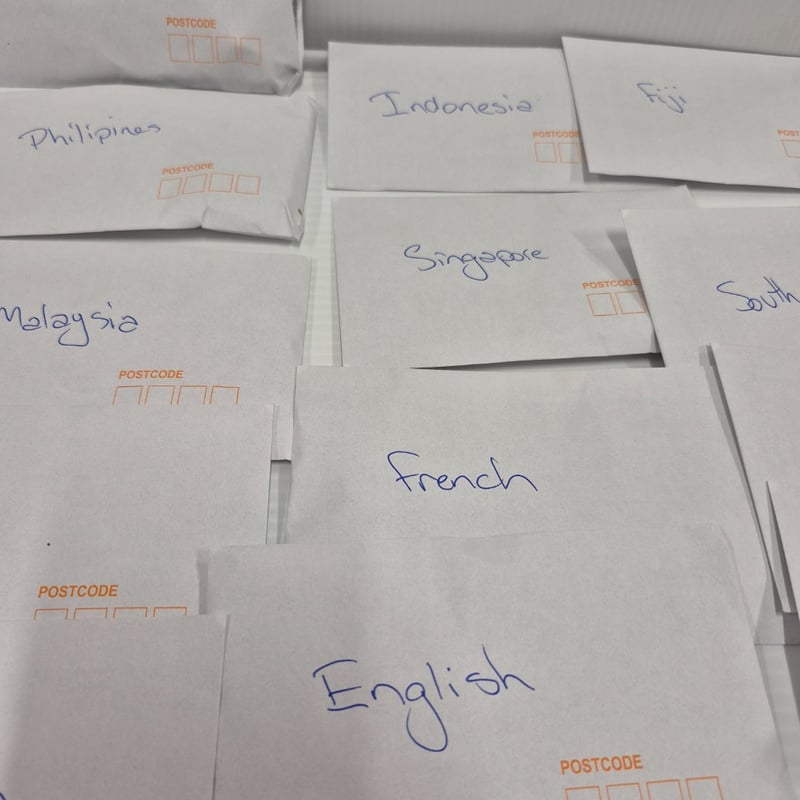 POSTCODE
Philipines
POSTCODE
Indonesia
POSTCODE
Fiji
Singapore
POSTCODE
South
Malaysia
POSTCODE
French
POSTCODE
English
POSTCODE